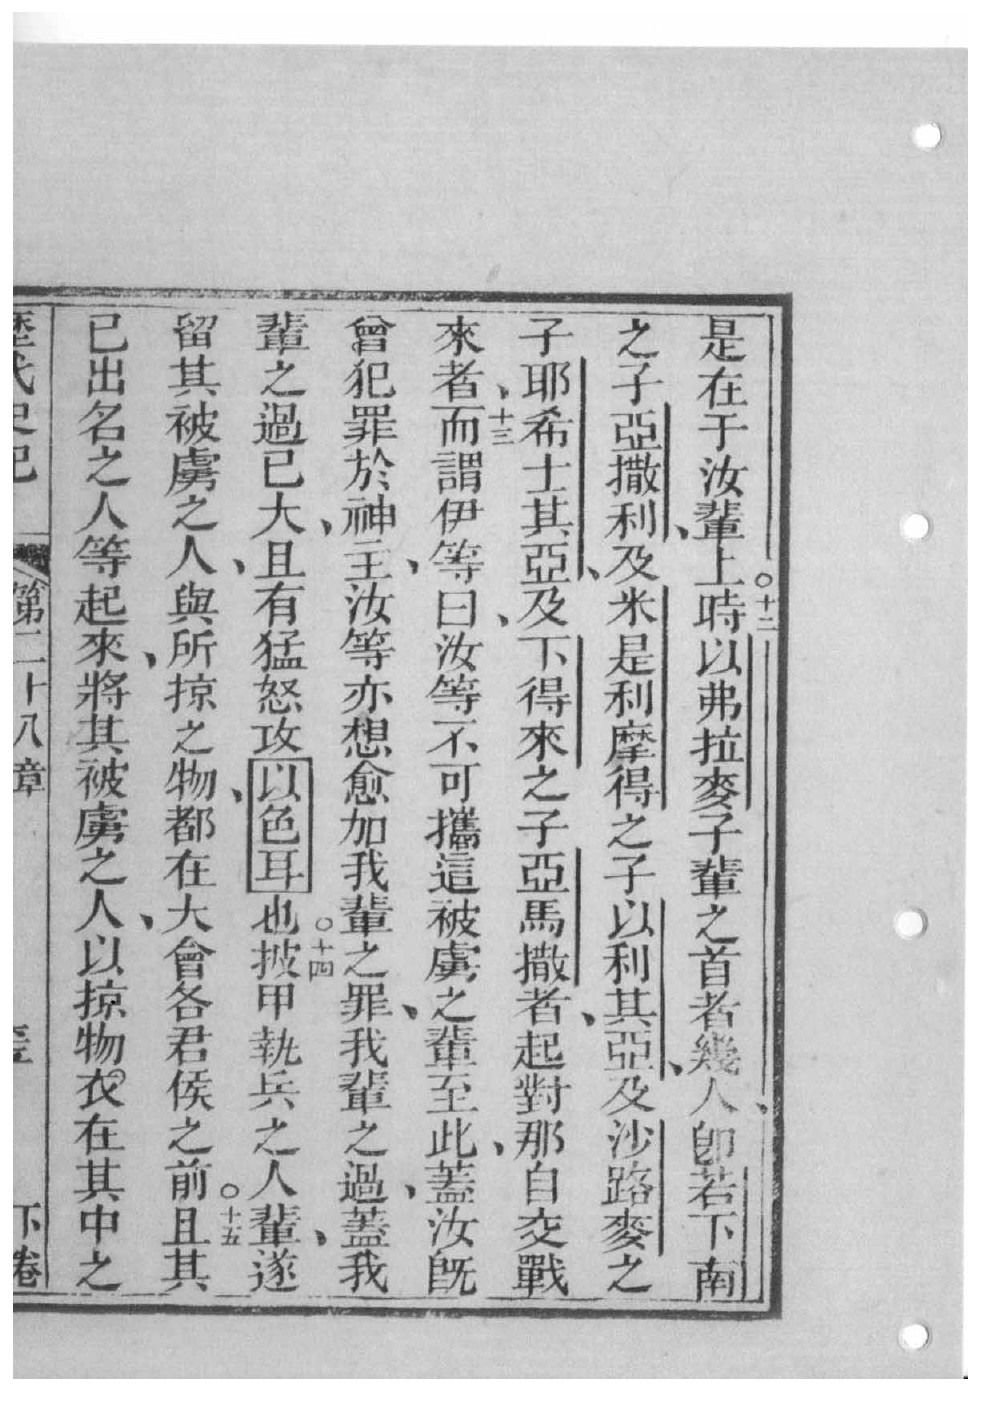 是在于汝輩上。十二時以弗拉麥子輩之首者幾人、卽若下南
之子亞撒利、及米是利摩得之子以利其亞、及沙路麥之
子耶希士其亞、及下得來之子亞馬撒者、起對那自交戰
來者、十三而謂伊等曰、汝等不可攜這被虜之輩至此、蓋汝旣
曾犯罪於神主、汝等亦想愈加我輩之罪、我輩之過、蓋我
輩之過已大、且有猛怒攻以色耳也。十四披甲執兵之人輩、遂
留其被虜之人、與所掠之物、都在大會各君侯之前。十五且其
已出名之人等起來、將其被虜之人、以掠物衣在其中之
歷代史記 第二十八章 下卷